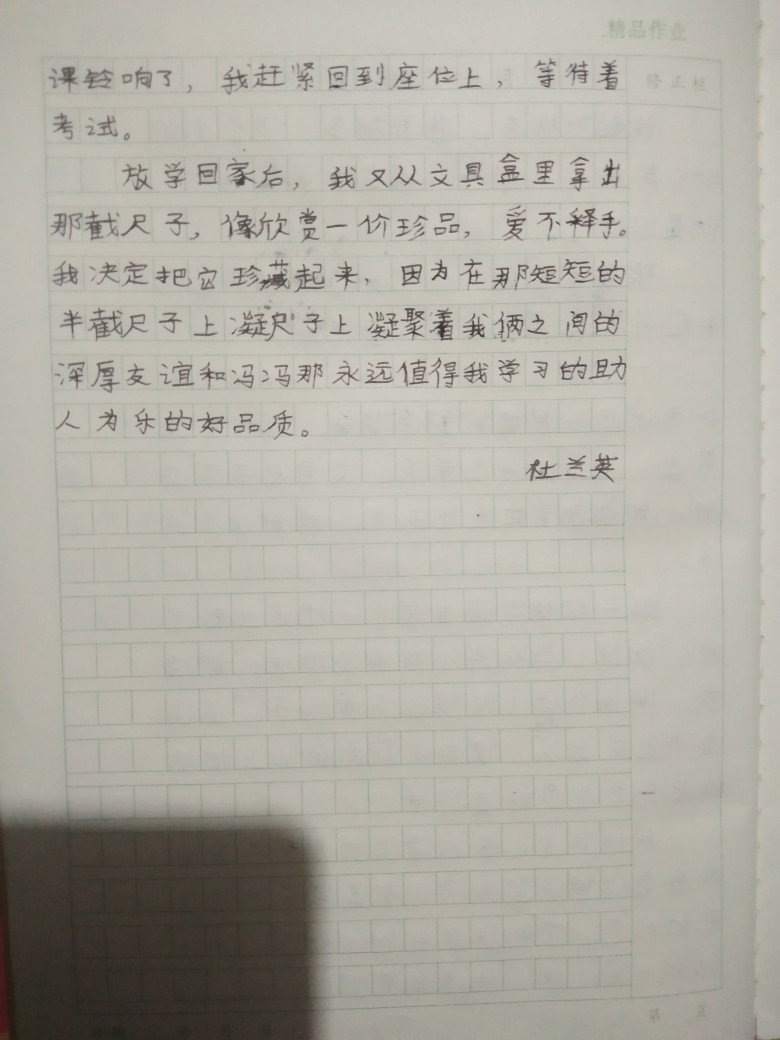 精品作业
修正栏
课铃响了，我赶紧回到座位上，等待着
考试。
放学回家后，我又从文具盒里拿出
那截尺子，像欣赏一价珍品，爱不释手。
我决定把它珍藏起来，因为在那短短的
半截尺子上凝尺子上凝聚着我俩之间的
深厚友谊和冯冯那永远值得我学习的助
人为乐的好品质。
杜兰英
第 页